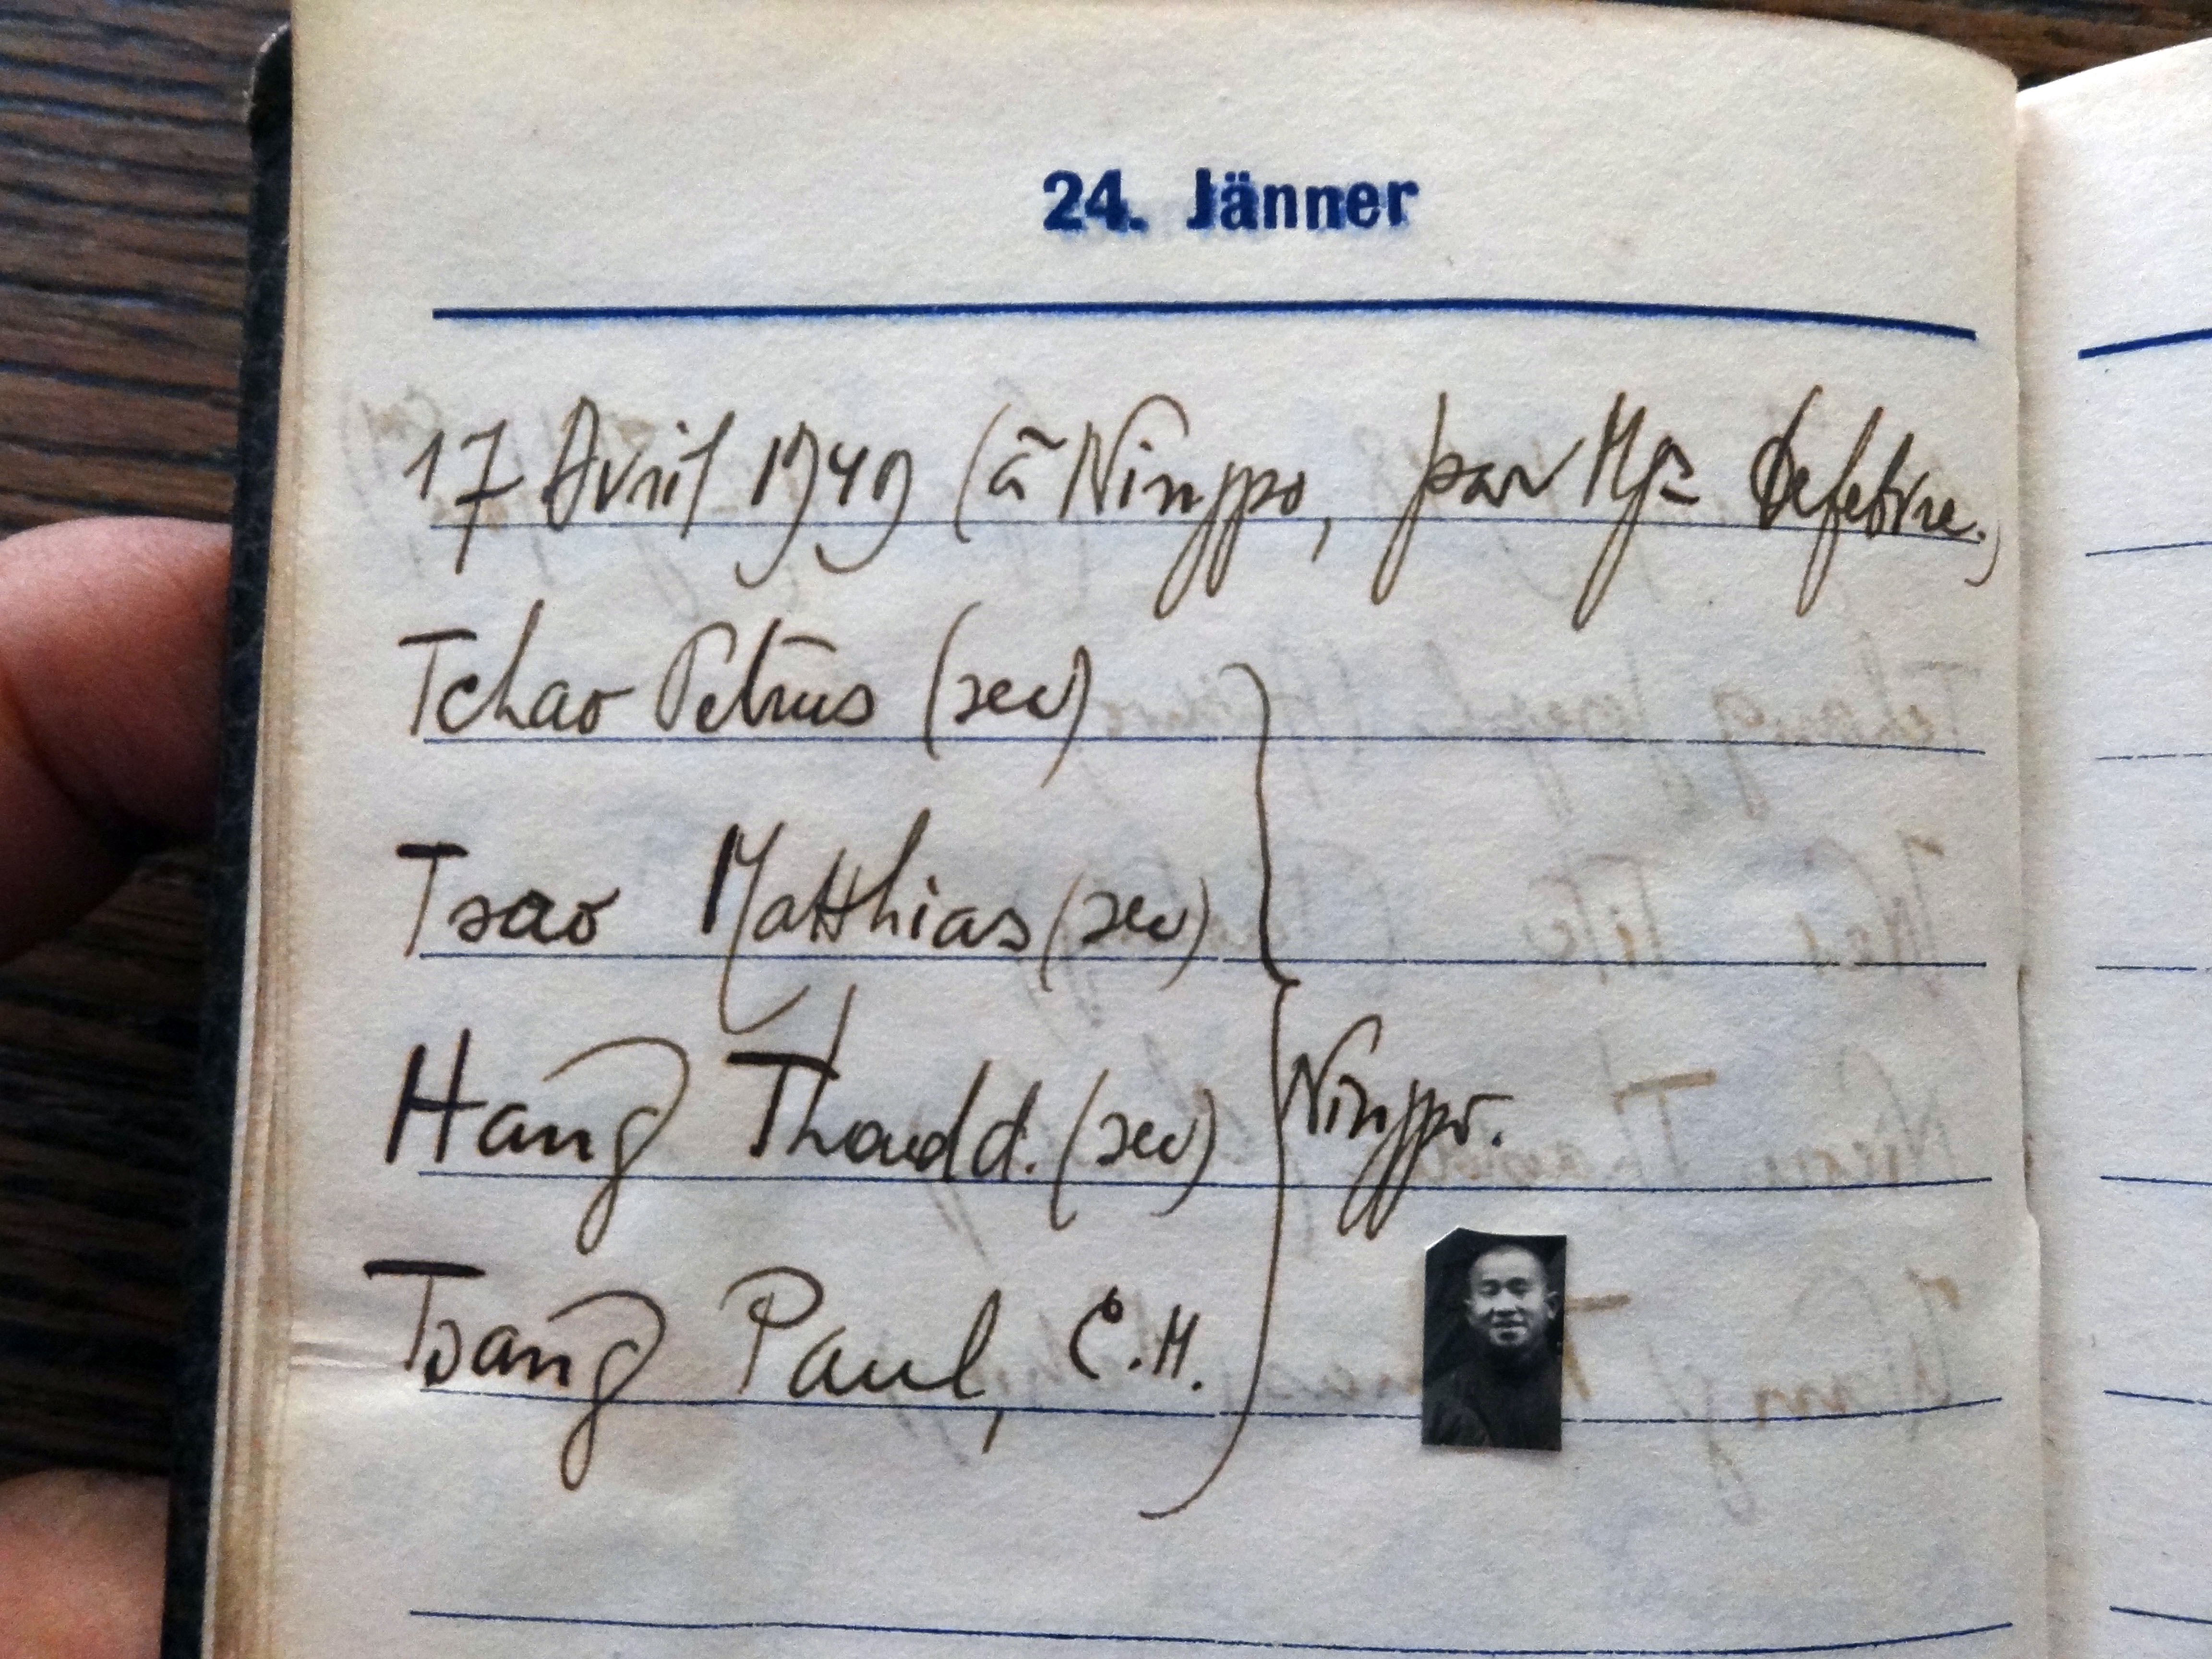 24. Jänner
17 Avril 1949 (à Ningpo, par Mgr Defebvre.)
Tchao Petrus (sec)
Tsao Matthias (sec)
Hang Thadd. (sec)
Ningpo.
Tsang Paul, C.M.